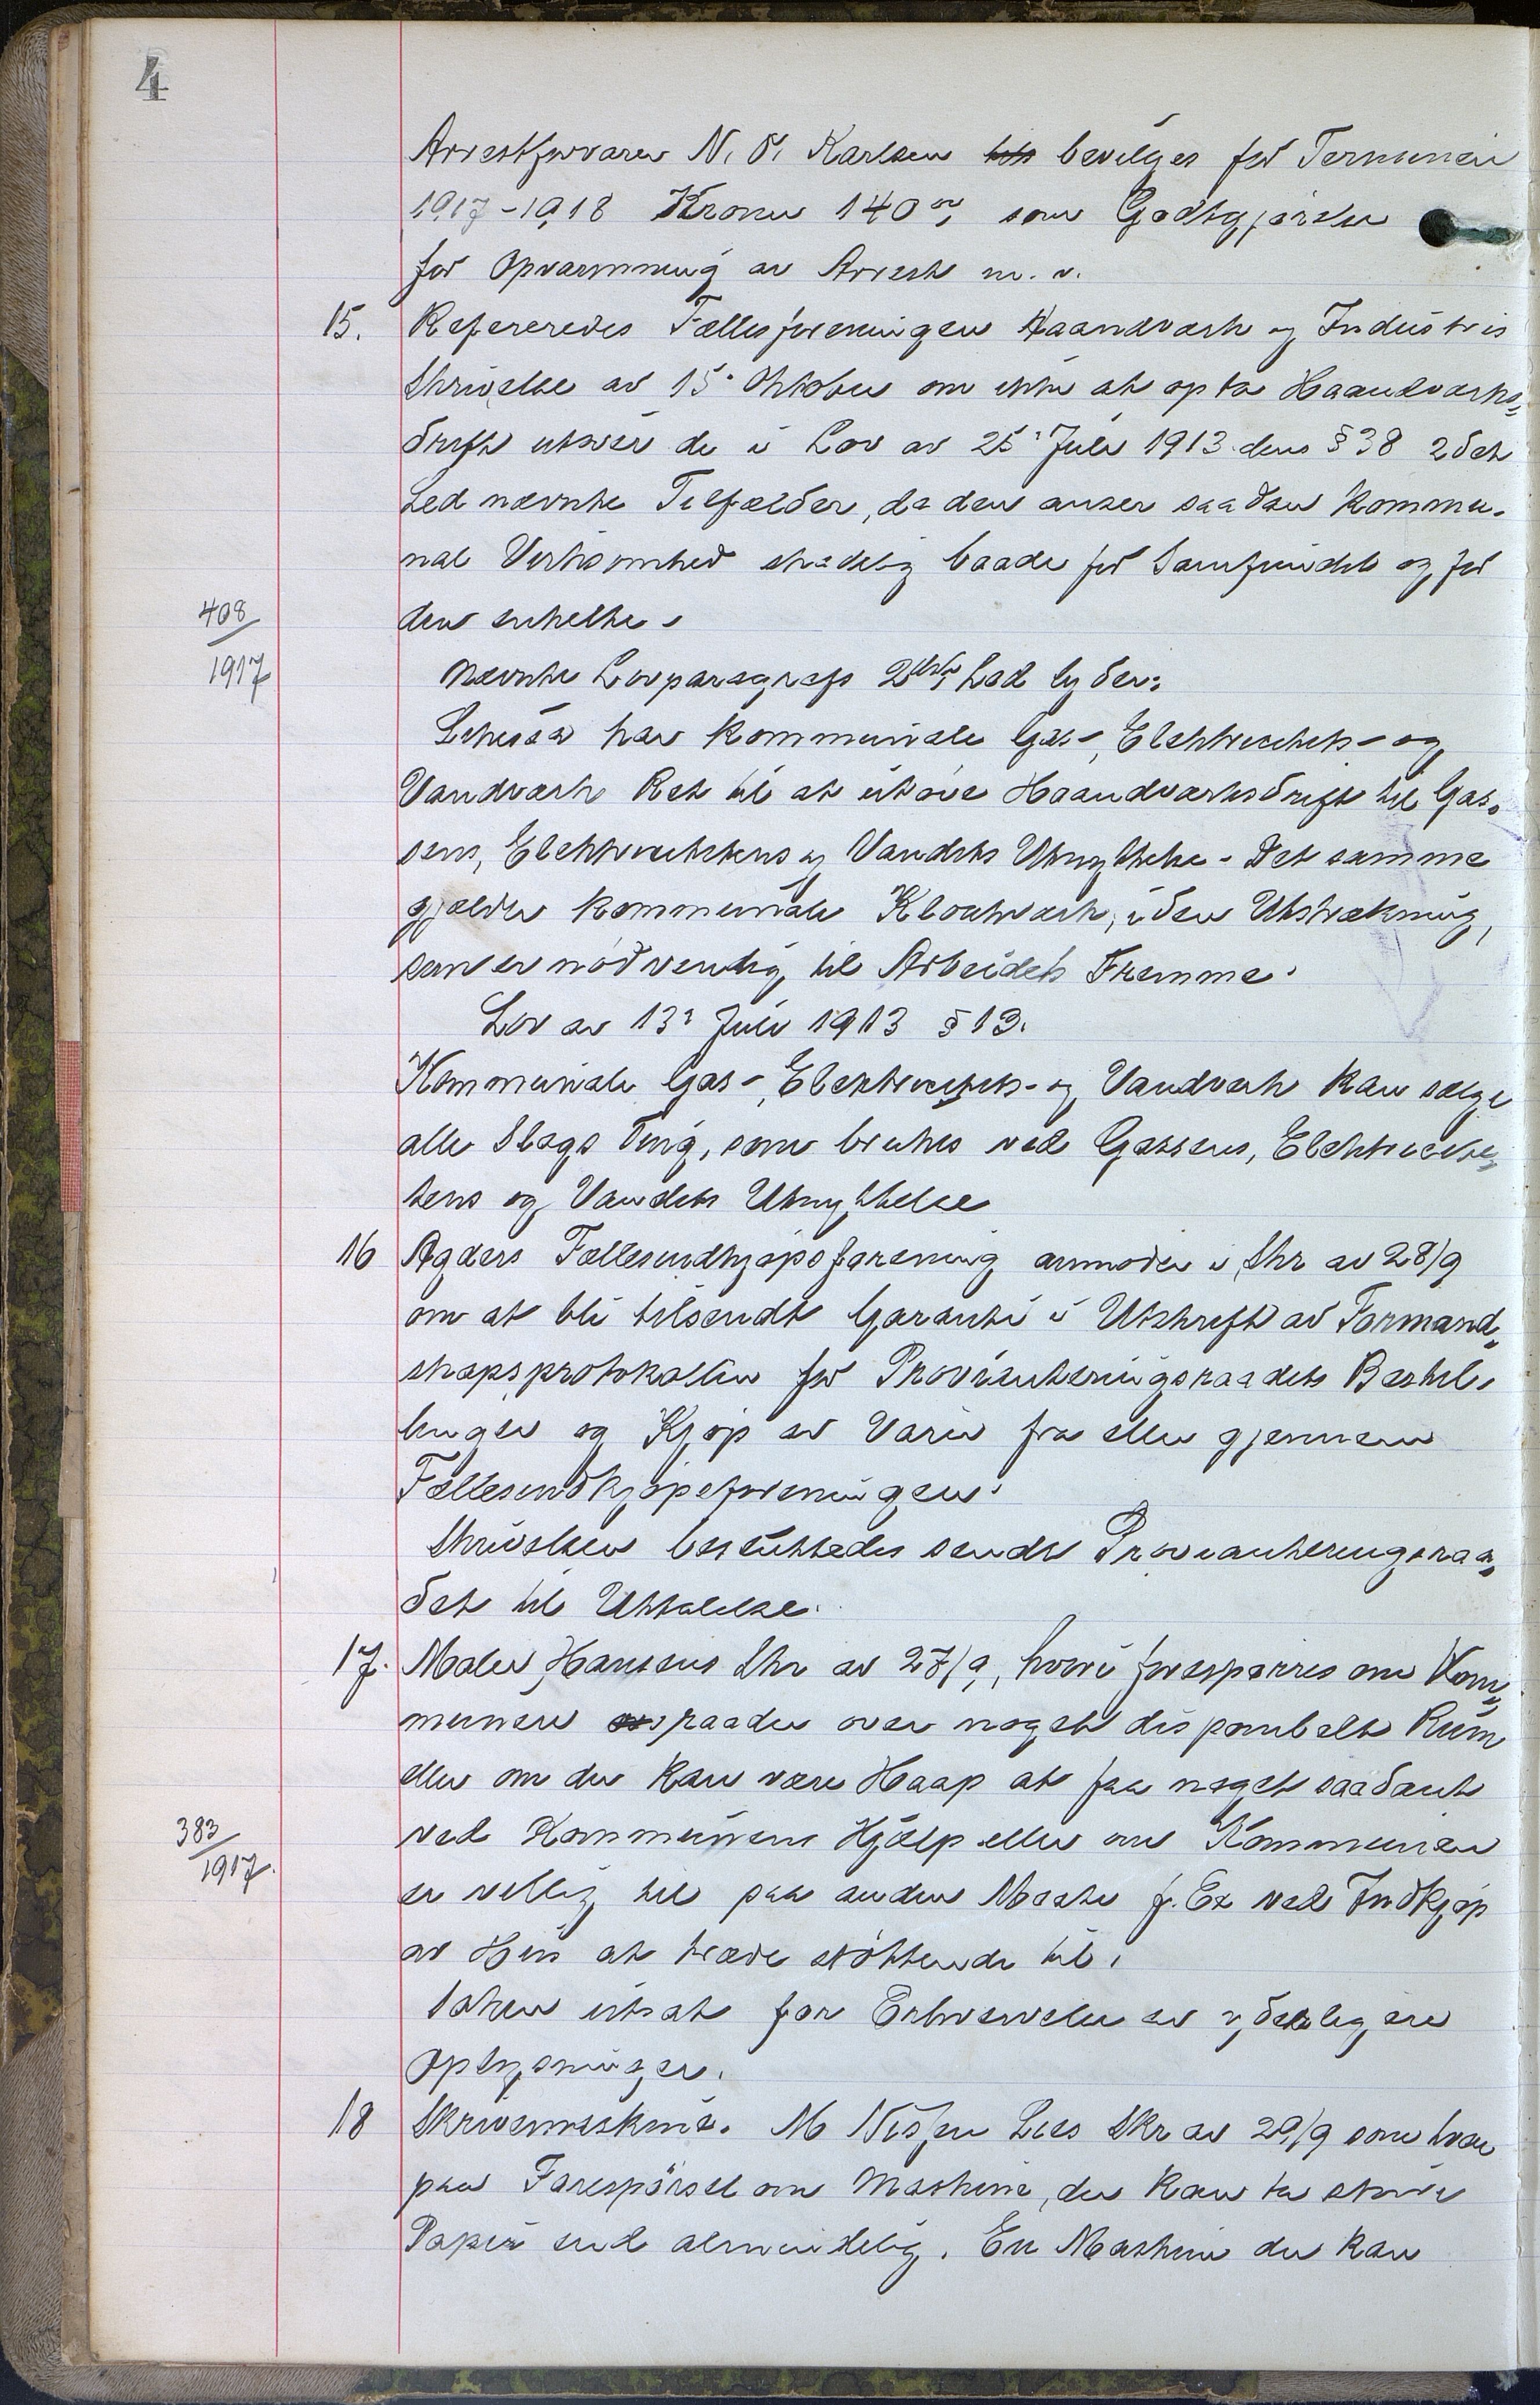 4
Arrestforvarer N. O. Karlsen bevilges for Terminen
1917-1918 Kroner 140 00, som Godtgjørelse
for Opvarmning av Arrest m. v.
15. Refereredes Fællesforeningen Haandverk og Industris
Skrivelse av 15. Oktober om ikke at opta Haandverks=
drift utover de i Lov av 25. Juli 1913 dens § 38 2det
Led nævnte Tilfælder, da den anser saadan kommu-
nal Virksomhed skadelig baade for Samfundet og for
den enkelte.
408/1917
Nævnte Lovparagrafs 2det Led lyder:
Likesaa har kommunale Gas-, Elektricitets- og
Vandverk Ret til at utøve Haandverksdrift til Gas=
sens, Elektricitetens og Vandets Utnyttelse. Det samme
gjælder kommunale Kloakverk, i den Utstrækning,
som er nødvendig til Arbeidets Fremme.
Lov av 13. Juli 1913 § 13.
Kommunale Gas-, Elektricitets- og Vandverk kan sælge
alle Slags Ting, som brukes ved Gassens, Elektricite=
tens og Vandets Utnyttelse
16 Agders Fællesindkjøpsforening anmoder i Skr av 28/9
om at bli tilsendt Garanti i Utskrift av Formand=
skapsprotokollen for Provianteringsraadets Bestil-
linger og Kjøp av Varer fra eller gjennem
Fællesindkjøpsforeningen.
Skrivelsen besluttedes sendt Provianteringsraa=
det til Uttalelse.
17. Maler Hansens Skr av 27/9, hvori forespørres om Kom=
munen raader over noget disponibelt Rum
eller om der kan være Haap at faa noget saadant
ved Kommunens Hjælp eller om Kommunen
383/1917.
er villig til paa anden Maate f. Ex ved Indkjøp
av Hus at træde støttende til.
Saken utsat for Erhvervelse av yderligere
Oplysninger.
18 Skrivemaskine. M Nissen Lies Skr av 29/9 som Svar
paa Forespørsel om Maskine, der kan ta større
Papir end almindelig. En Maskine der kan